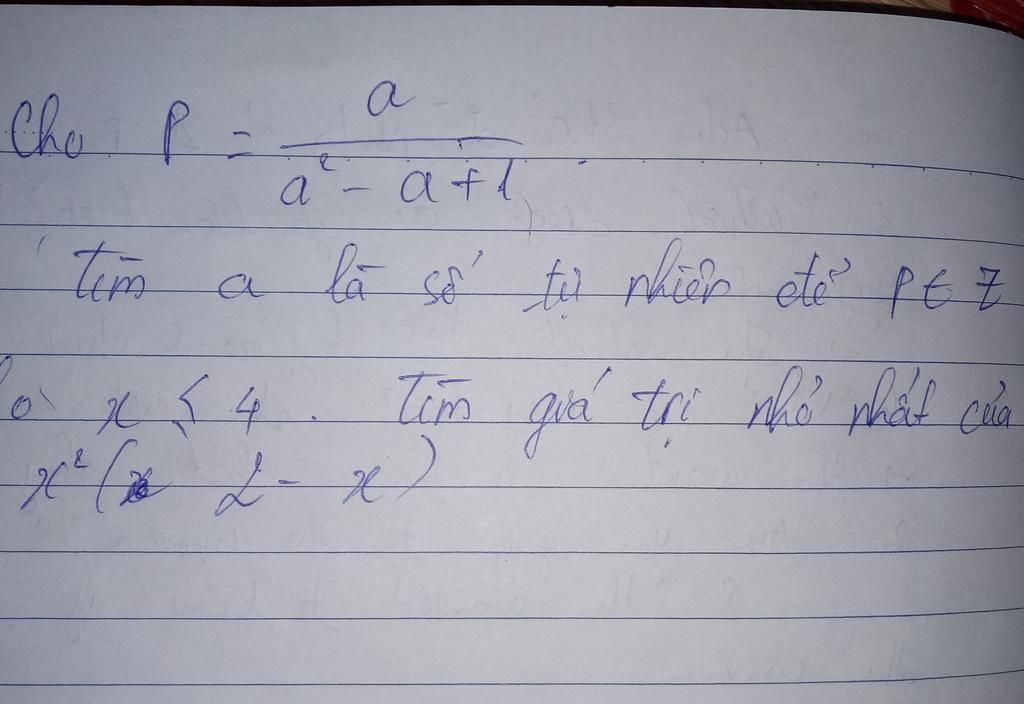 Cho P = a / (a² - a + 1)
Tìm a là số tự nhiên để P ∈ Z
x ≤ 4. Tìm giá trị nhỏ nhất của
x² (2 - x)